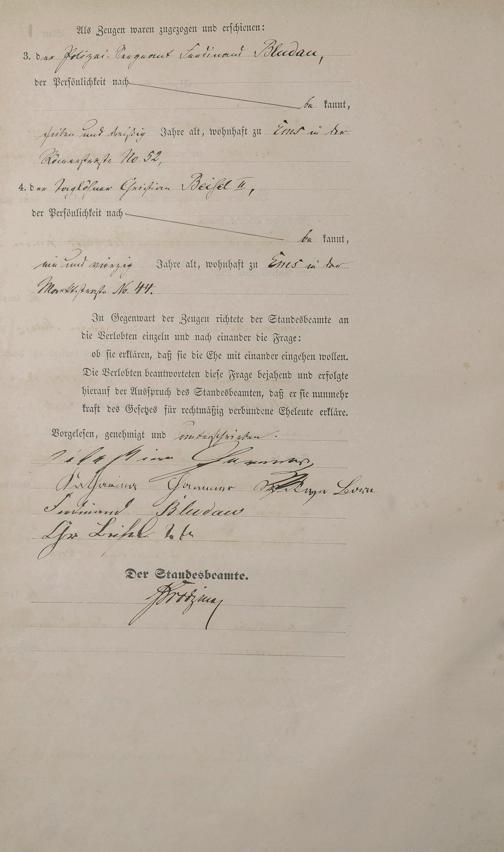 Als Zeugen waren zugezogen und erschienen:
3. der Polizei-Sergeant Ferdinand Bludau,
der Persönlichkeit nach
be kannt,
sieben und dreißig Jahre alt, wohnhaft zu Ems in der
Römerstraße No 52,
4. der Taglöhner Christian Beisel II,
der Persönlichkeit nach
be kannt,
ein und vierzig Jahre alt, wohnhaft zu Ems in der
Marktstraße No. 44.
In Gegenwart der Zeugen richtete der Standesbeamte an
die Verlobten einzeln und nach einander die Frage:
ob sie erklären, daß sie die Ehe mit einander eingehen wollen.
Die Verlobten beantworteten diese Frage bejahend und erfolgte
hierauf der Ausspruch des Standesbeamten, daß er sie nunmehr
kraft des Gesetzes für rechtmäßig verbundene Eheleute erkläre.
Vorgelesen, genehmigt und unterschrieben.
Katharina
Ferdinand Bludau
Chr Beisel
Der Standesbeamte.